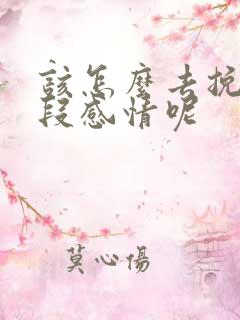 该怎麼去挽
段感情呢
莫心傷